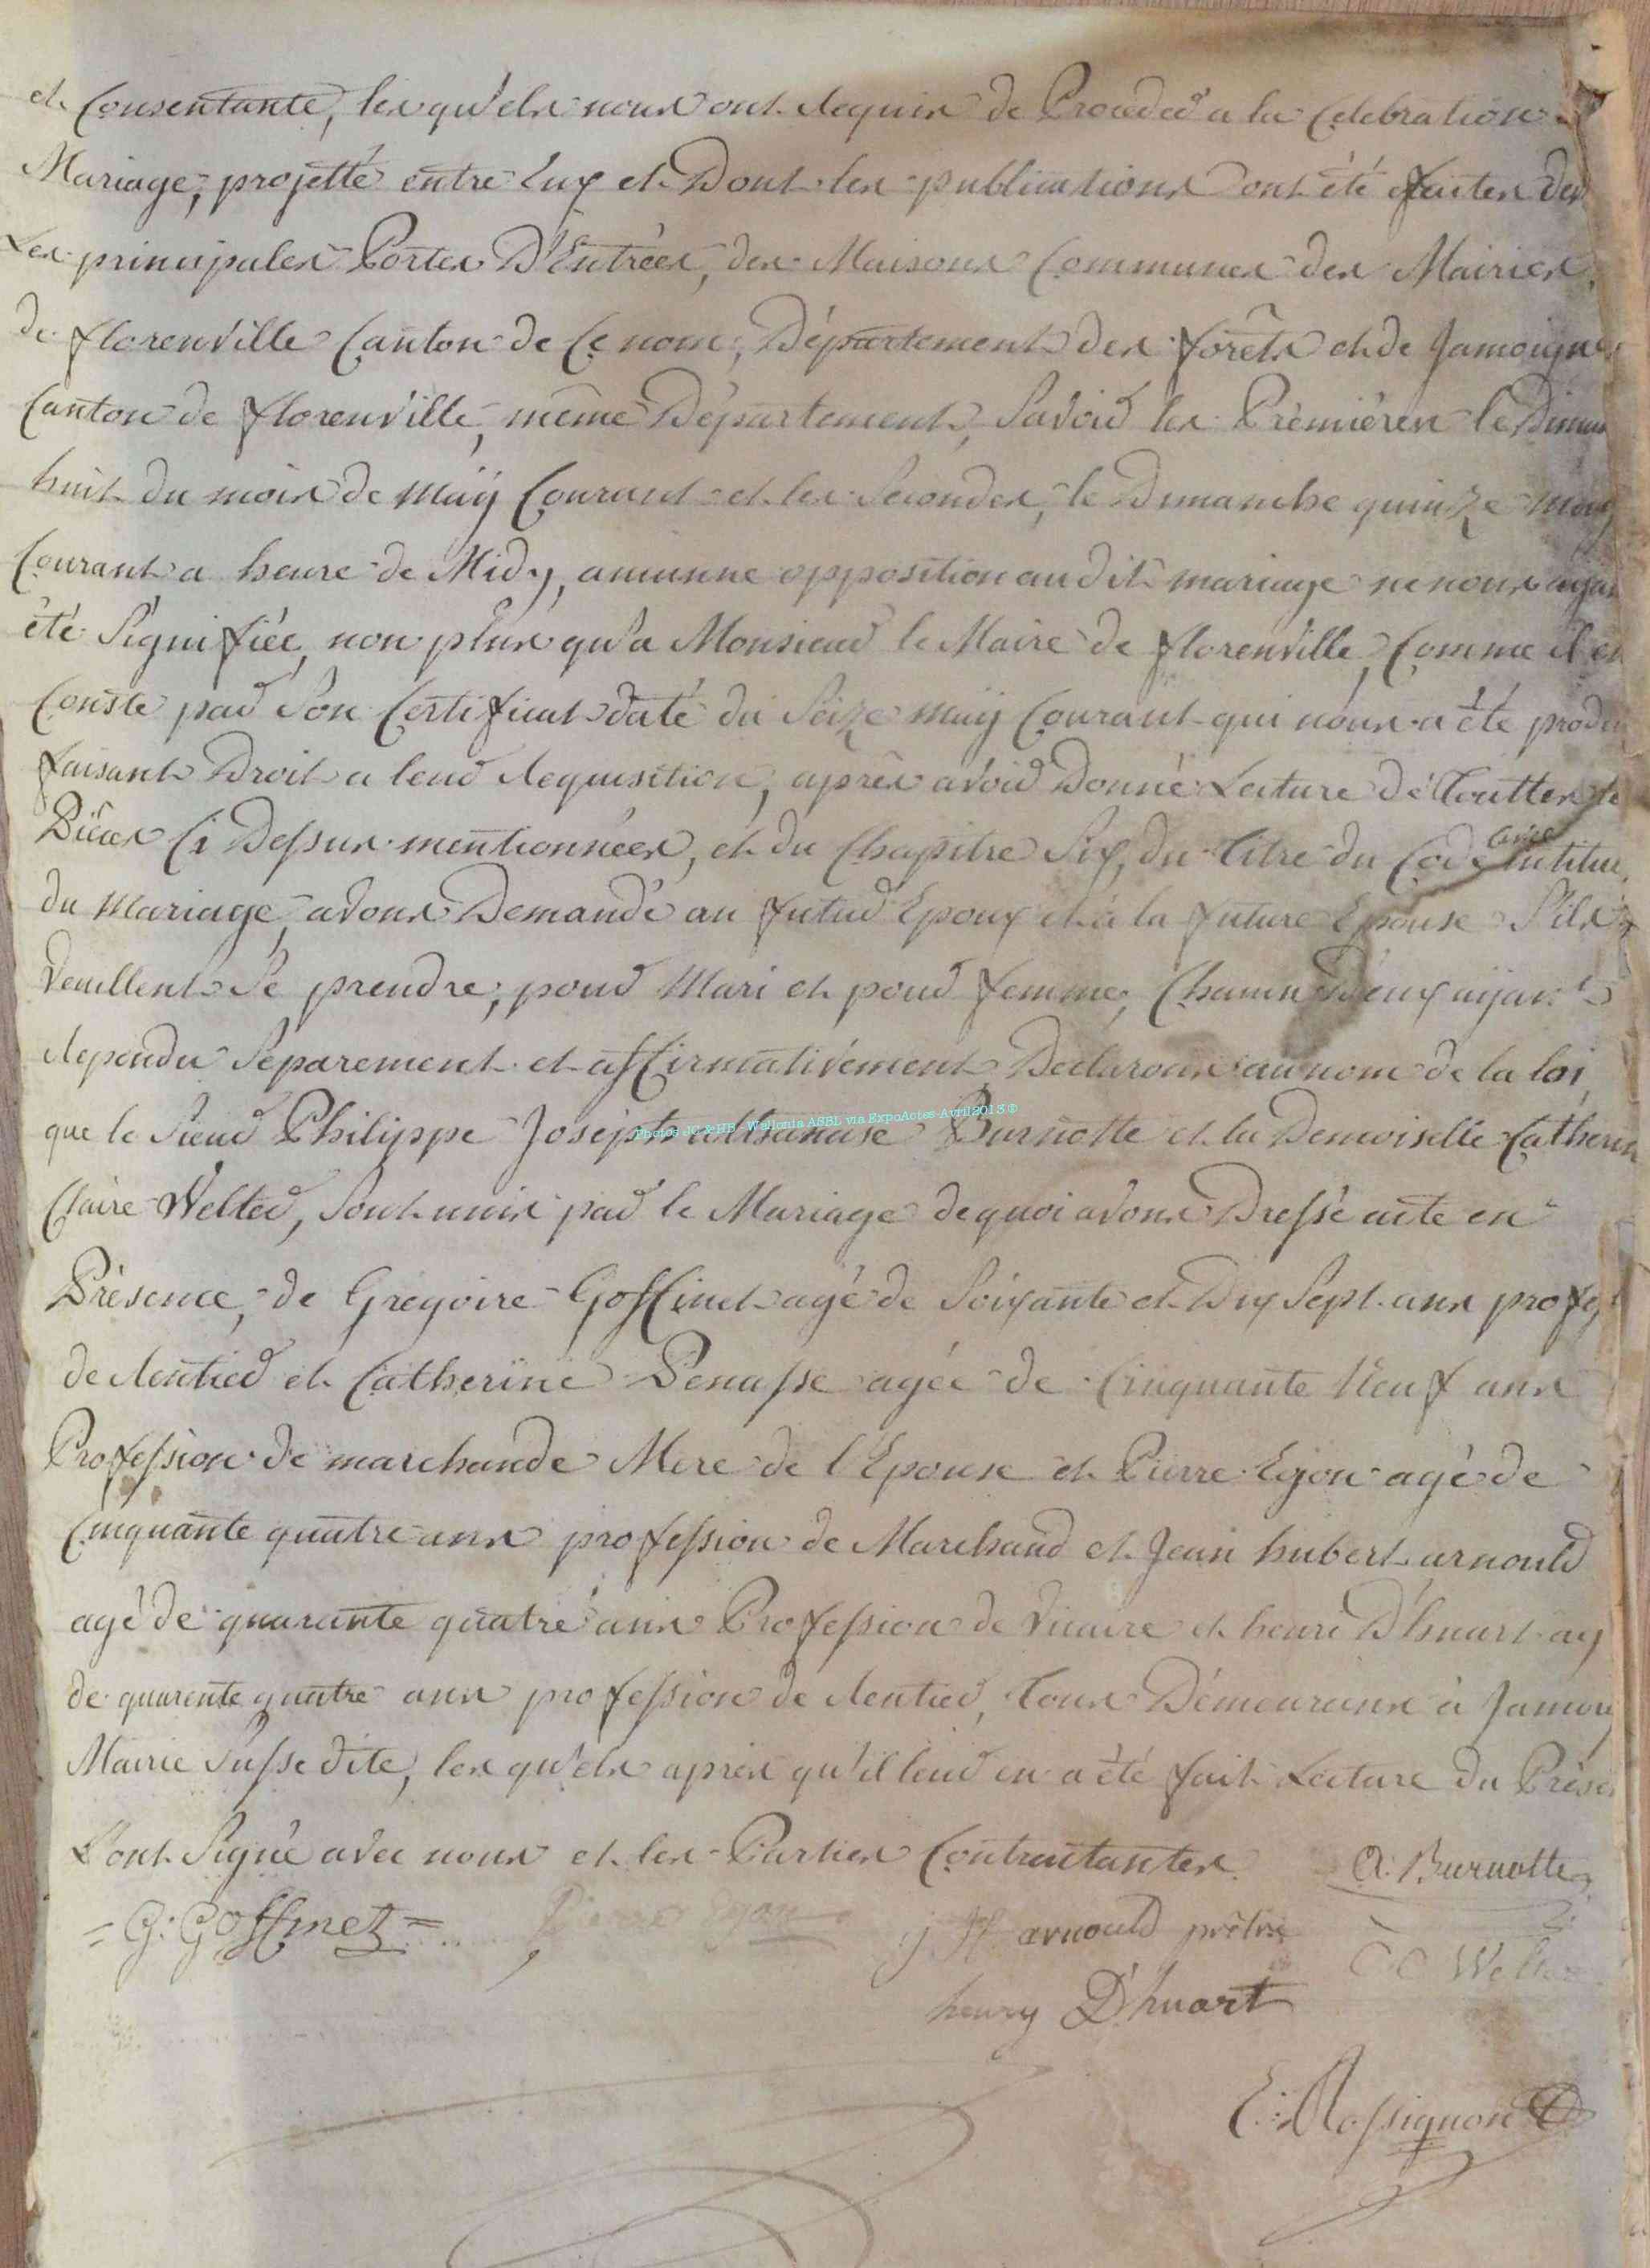 et Consentante, les qu'els nous ont Requis de Proceder a la Celebration
Mariage, projetté entre Eux et Dont les publications ont été faites de
Les principales Portes D'Entrées, des Maisons Communes des Mairies
de florenville Canton de Ce nom, Département des forêts et de Jamoigne
Canton de florenville, même Département, Savoir les Prèmiéres le Diman
huit du mois de maÿ Courant et les Secondes, le Dimanche quinze may
Courant a heure de Midy, aucunne opposition au dit mariage ne nous ayan
été Signifiée, non plus qu'a Monsieur le Maire de florenville, Comme il en
Conste par Son Certificat daté du Seize maÿ Courant qui nous a été produ
faisant Droit a leur Requisition, après avoir Donné Lecture dé Touttes le
Pièces Ci Dessus mentionnées, et du Chapitre Six, du titre du Code Civil intitu
du Mariage, avons Demandé au futur Epoux et à la future Epouse S'ils
veuillent Se prendre, pour Mari et pour femme, Chacun D'eux aÿant
Repondu Séparement et affirmativément Declarons au nom de la loi
que le Sieur Philippe Joseph athanase Burnotte et la Demoiselle Catherin
Claire Welter, Sont unis par le Mariage de quoi avons Dressé acte en
Présence, de Gregoire Goffinet agé de Soixante et Dix Sept ans profess
de Rentier et Catherine Penasse agée de Cinquante Neuf ans
Profession de marchande Mere de l'Epouse et Pierre Egon agé de
Cinquante quatre ans profession de Marchand et Jean hubert arnould
agé de quarante quatre ans Profession de Vicaire et henri D'huart ag
de quarente quatre ans profession de Rentier, tous Démeurans à Jamoi
Mairie Susse dite, les qu'els après qu'il leur en a été fait Lecture du Prèse
L'ont Signé avec nous et les Parties Contractantes. A: Burnotte
G: Goffinet Pierre Egon j H arnould prêtre C C Welter
henry D'huart
E: Rossignon
Photos JC & HB / Wallonia ASBL via ExpoActes-Avril2013®